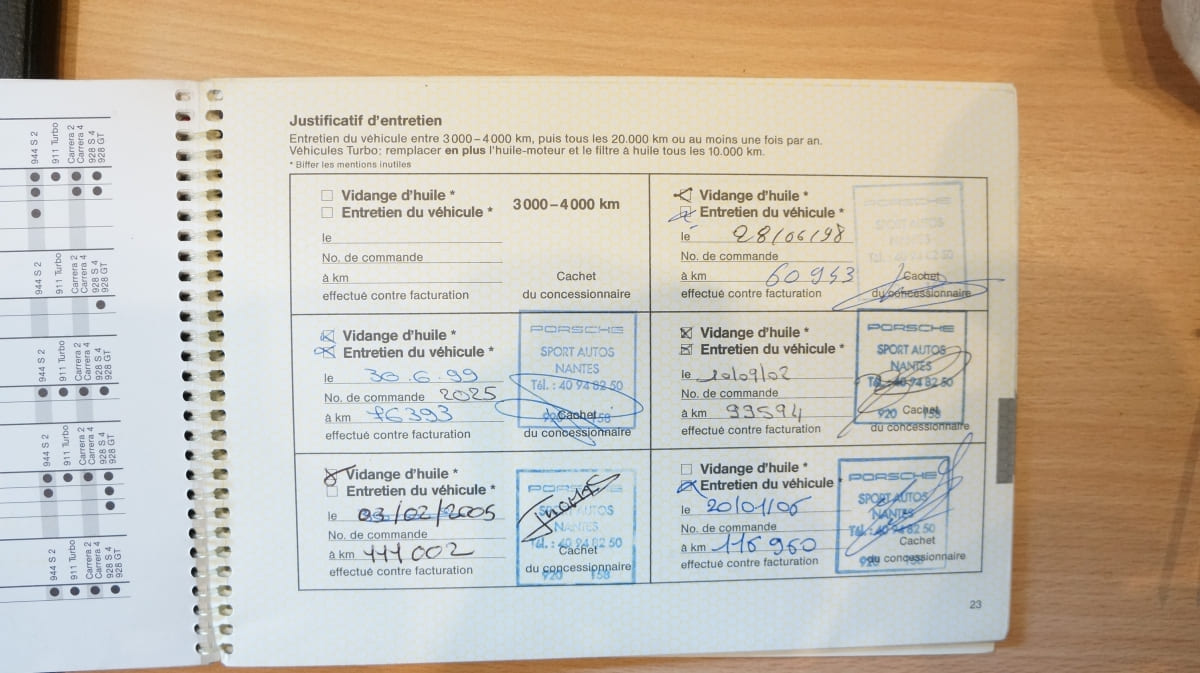 944 S 2
911 Turbo
Carrera 2
Carrera 4
928 S 4
928 GT
944 S 2
911 Turbo
Carrera 2
Carrera 4
928 S 4
928 GT
944 S 2
911 Turbo
Carrera 2
Carrera 4
928 S 4
928 GT
944 S 2
911 Turbo
Carrera 2
Carrera 4
928 S 4
928 GT
944 S 2
911 Turbo
Carrera 2
Carrera 4
928 S 4
928 GT
Justificatif d'entretien
Entretien du véhicule entre 3 000 – 4 000 km, puis tous les 20.000 km ou au moins une fois par an.
Véhicules Turbo: remplacer en plus l'huile-moteur et le filtre à huile tous les 10.000 km.
* Biffer les mentions inutiles
Vidange d'huile *
Entretien du véhicule *
3 000 – 4 000 km
le
No. de commande
à km
effectué contre facturation
Cachet
du concessionnaire
Vidange d'huile *
Entretien du véhicule *
le 28/06/98
No. de commande
à km 60943
effectué contre facturation
PORSCHE
SPORT AUTOS
NANTES
Tél. : 40 94 82 50
Cachet
du concessionnaire
Vidange d'huile *
Entretien du véhicule *
le 30.6.99
No. de commande 2025
à km 76393
effectué contre facturation
PORSCHE
SPORT AUTOS
NANTES
Tél. : 40 94 82 50
920 158
Cachet
du concessionnaire
Vidange d'huile *
Entretien du véhicule *
le 20/09/02
No. de commande
à km 99594
effectué contre facturation
PORSCHE
SPORT AUTOS
NANTES
Tél. : 40 94 82 50
920 158
Cachet
du concessionnaire
Vidange d'huile *
Entretien du véhicule *
le 03/02/2005
No. de commande
à km 111002
effectué contre facturation
PORSCHE
SPORT AUTOS
NANTES
Tél. : 40 94 82 50
Cachet
du concessionnaire
920 158
Vidange d'huile *
Entretien du véhicule *
le 20/01/06
No. de commande
à km 116960
effectué contre facturation
PORSCHE
SPORT AUTOS
NANTES
Tél. : 40 94 82 50
Cachet
du concessionnaire
920 158
23